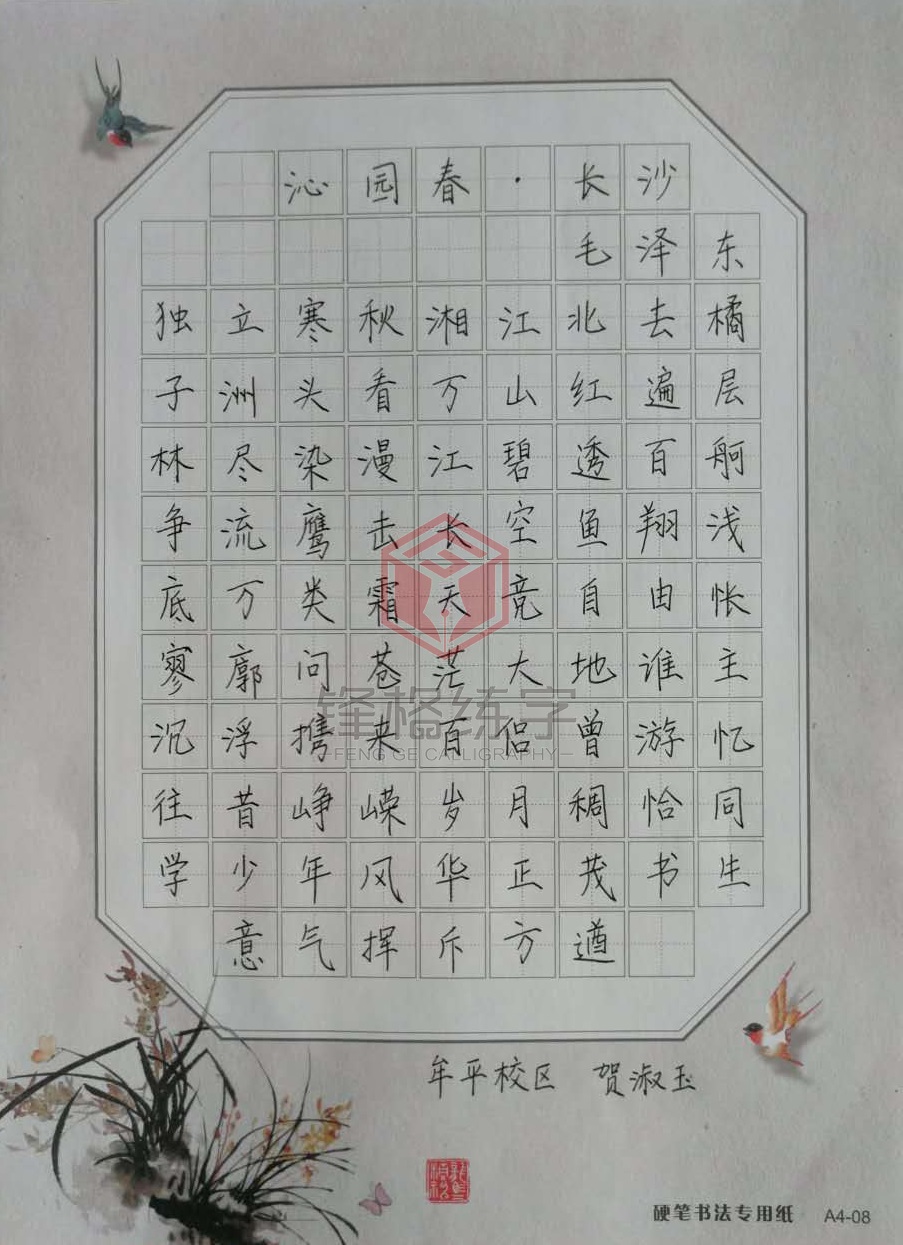 沁园春·长沙
毛泽东
独立寒秋湘江北去橘
子洲头看万山红遍层
林尽染漫江碧透百舸
争流鹰击长空鱼翔浅
底万类霜天竞自由怅
寥廓问苍茫大地谁主
沉浮携来百侣曾游忆
往昔峥嵘岁月稠恰同
学少年风华正茂书生
意气挥斥方遒
锋格练字
FENG GE CALLIGRAPHY
牟平校区 贺淑玉
硬笔书法专用纸 A4-08